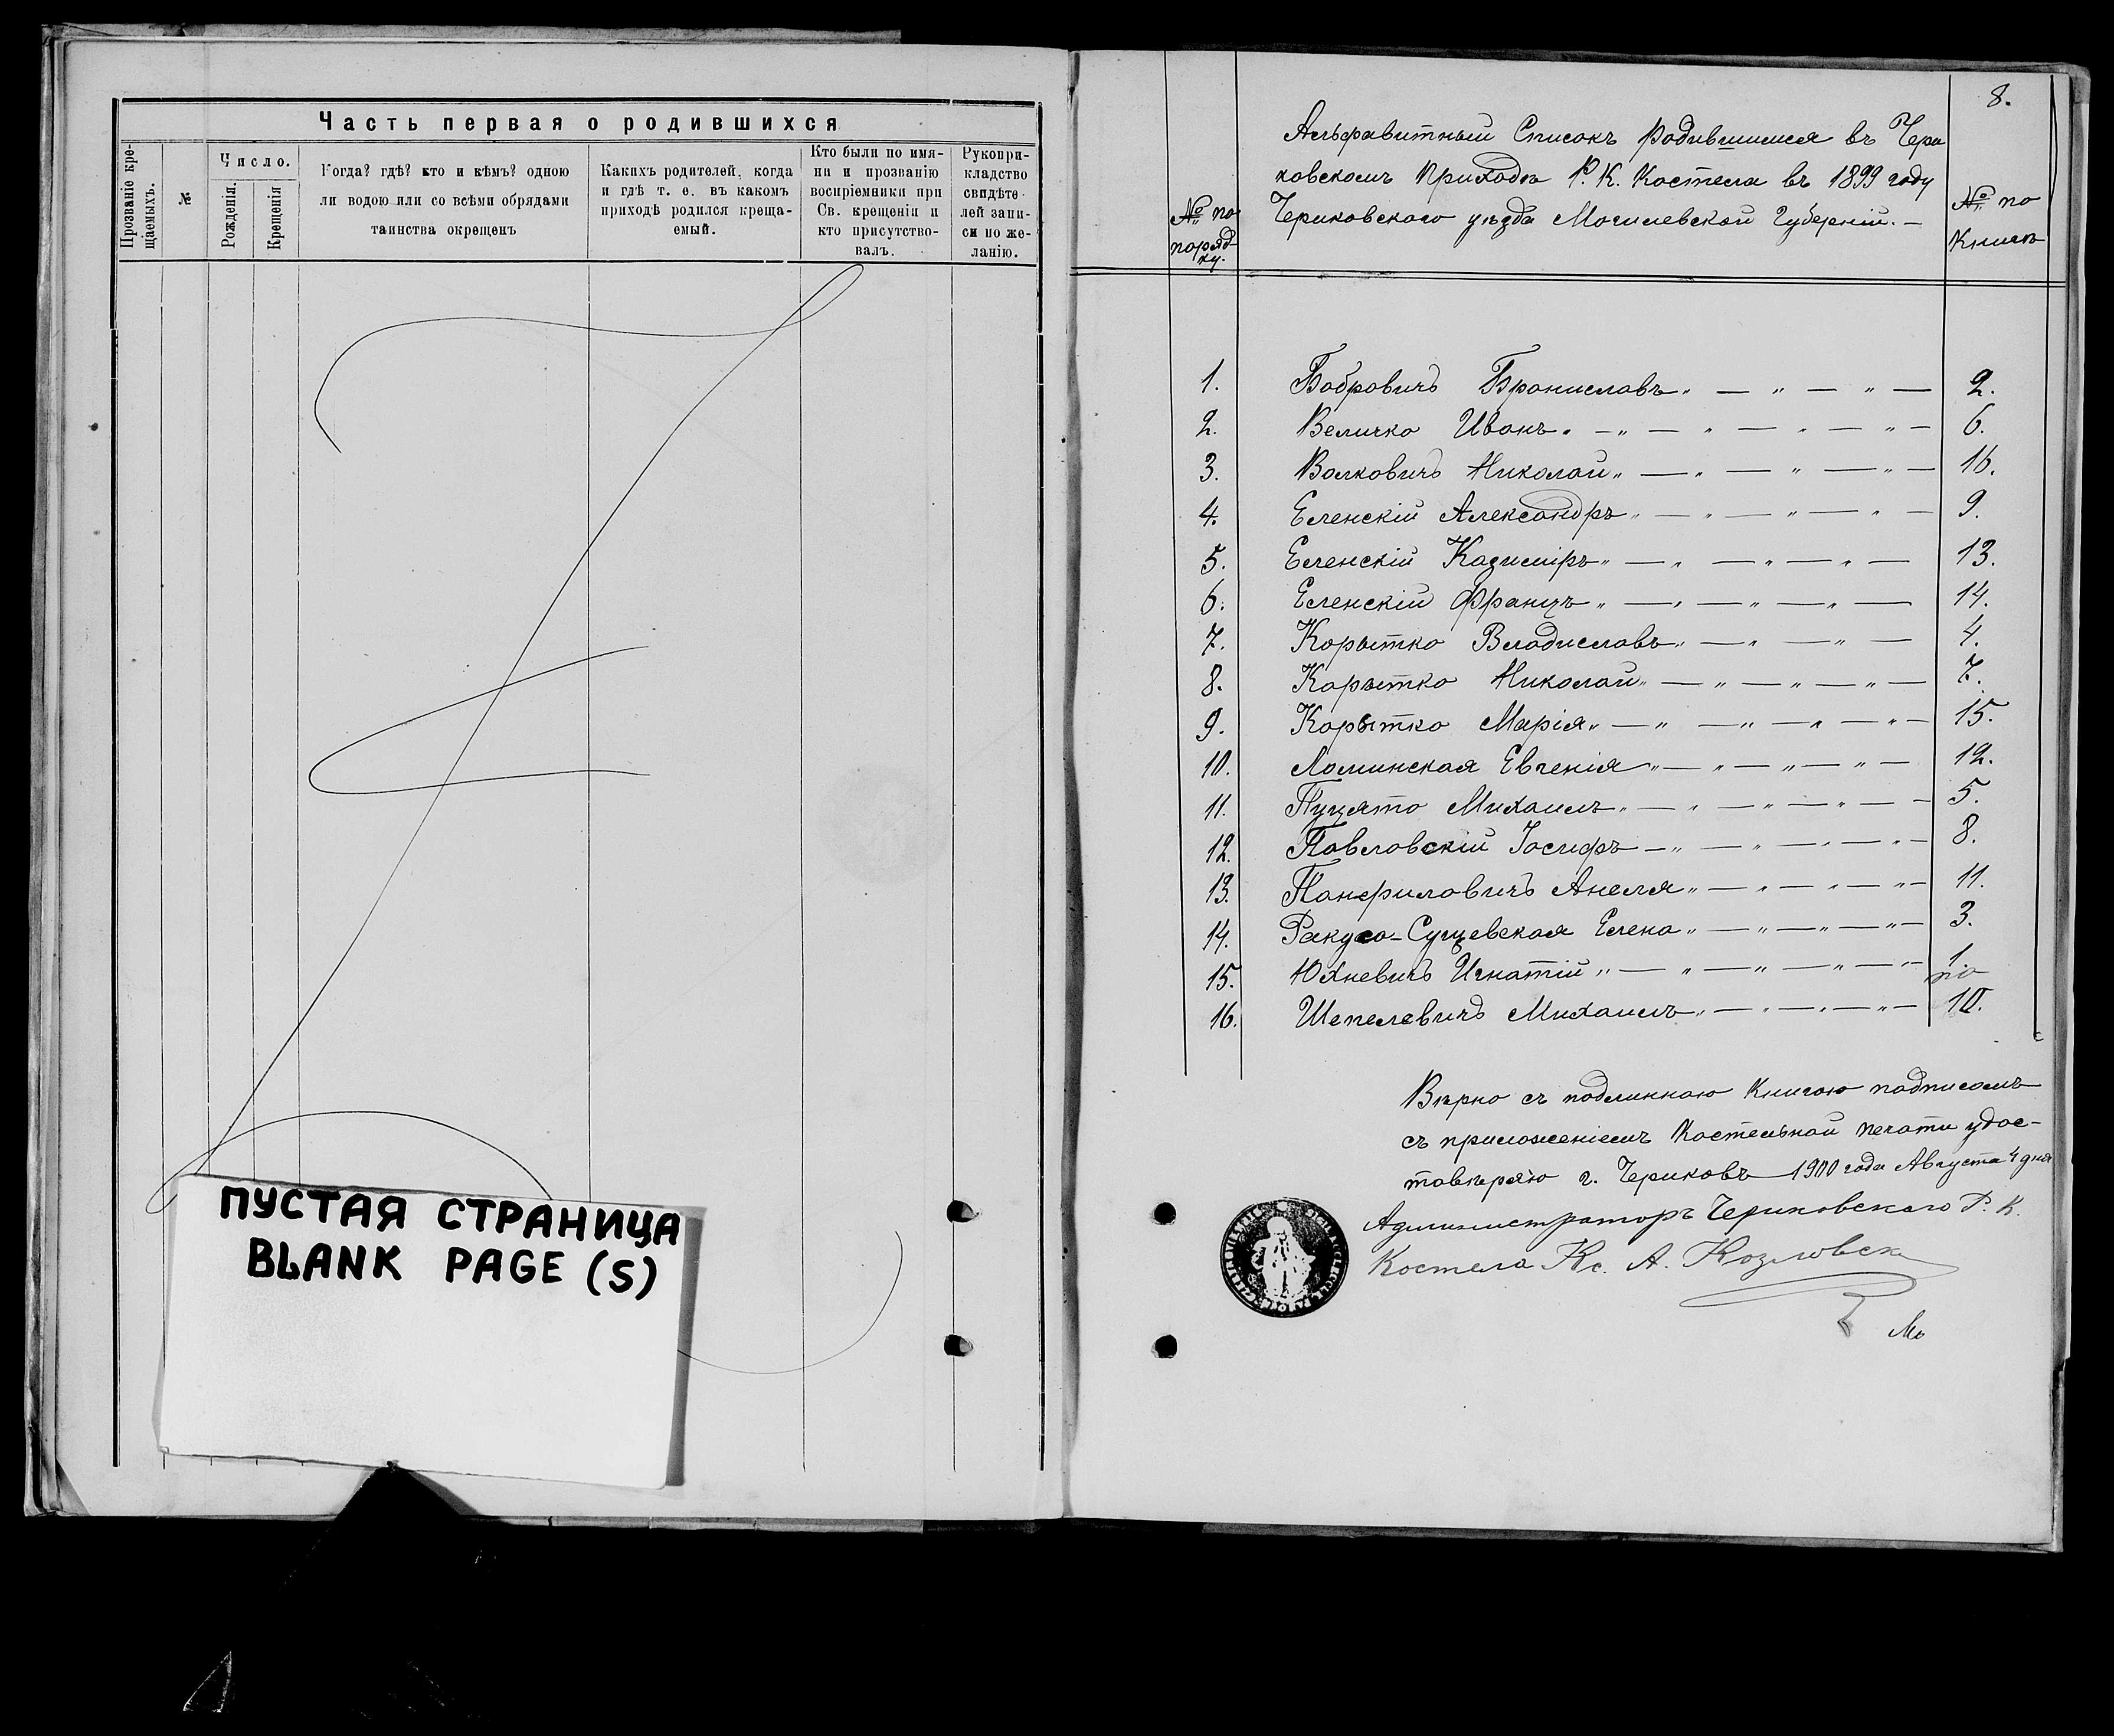 Часть первая о родившихся
Прозваніе кре-
щаемыхъ.
№
Число.
Рожденія.
Крещенія
Когда? гдѣ? кто и кѣмъ? одною
ли водою или со всѣми обрядами
таинства окрещенъ
Какихъ родителей, когда
и гдѣ т. е. въ какомъ
приходѣ родился креща-
емый.
Кто были по имя-
ни и прозванію
воспріемники при
Св. крещеніи и
кто присутство-
валъ.
Рукопри-
кладство
свидѣте-
лей запи-
си по же-
ланію.
ПУСТАЯ СТРАНИЦА
BLANK PAGE (S)
8.
№ по
поряд-
ку.
Альфавитный Списокъ родившимся въ Чери
ковскомъ Приходѣ Р. К. Костела въ 1899 году
Чериковскаго уѣзда Могилевской Губерніи. —
№ по
Книгѣ
1. Бобровичъ Брониславъ „ — „ — „ — 2.
2. Величко Иванъ „ — „ — „ — „ — „ — 6.
3. Волковичъ Николай „ — „ — „ — „ — 16.
4. Еленскій Александръ „ — „ — „ — „ — 9.
5. Еленскій Казиміръ „ — „ — „ — „ — 13.
6. Еленскій Францъ „ — „ — „ — „ — 14.
7. Корытко Владиславъ „ — „ — „ — 4.
8. Корытко Николай „ — „ — „ — „ — 7.
9. Корытко Марія „ — „ — „ — „ — „ — 15.
10. Ломинская Евгенія „ — „ — „ — „ — 12.
11. Пуцято Михаилъ „ — „ — „ — „ — — 5.
12. Павловскій Іосифъ — „ — „ — „ — „ — 8.
13. Панфиловичъ Анеля „ — „ — „ — „ — 11.
14. Ракуса-Сущевская Елена „ — „ — „ — „ — 3.
15. Юхневичъ Игнатій „ — „ — „ — „ — „ 1.
по
16. Шепелевичъ Михаилъ „ — „ — „ — „ — 10.
Вѣрно съ подлинною Книгою подписомъ
съ приложеніемъ Костельной печати удос-
товѣряю г. Чериковъ 1900 года Августа 4 дня
Администраторъ Чериковскаго Р. К.
Костела Кс. А. Козловск